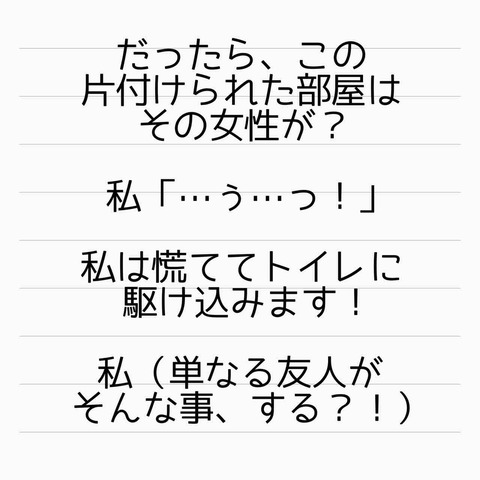 だったら、この
片付けられた部屋は
その女性が？
私「…ぅ…っ！」
私は慌ててトイレに
駆け込みます！
私（単なる友人が
そんな事、する？！）